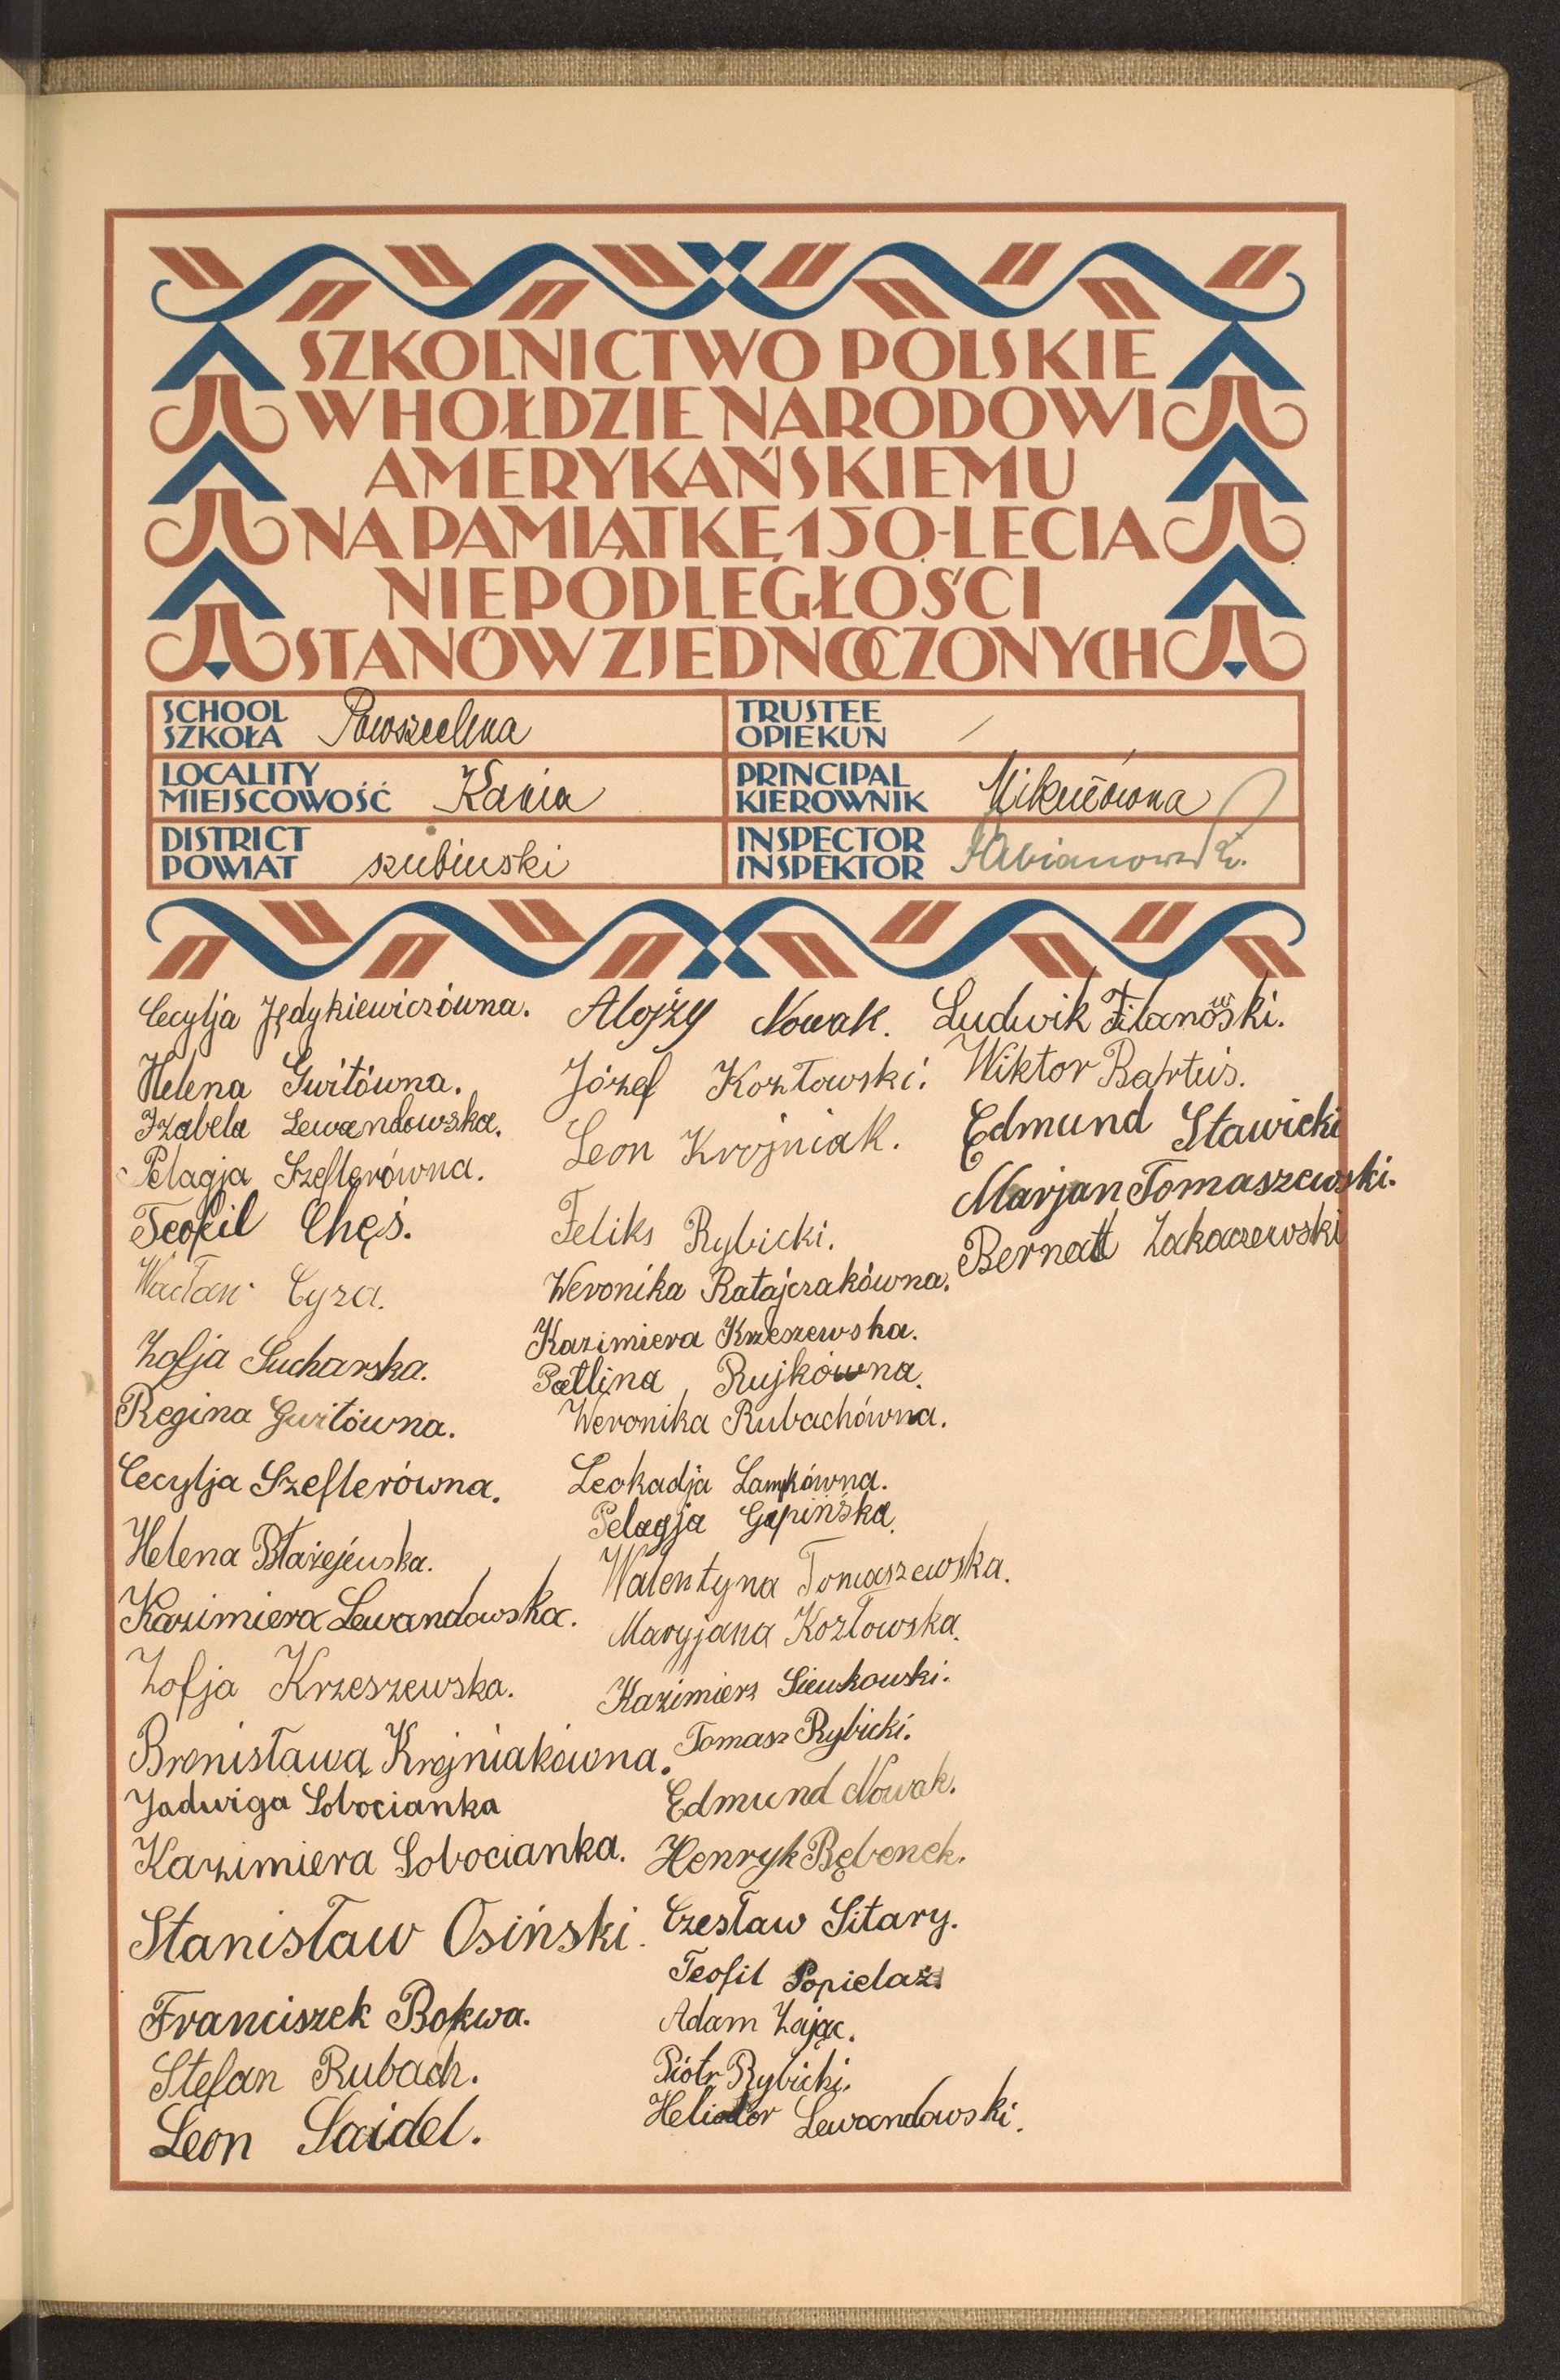 SZKOLNICTWO POLSKIE
W HOŁDZIE NARODOWI
AMERYKAŃSKIEMU
NA PAMIĄTKĘ 150-LECIA
NIEPODLEGŁOŚCI
STANÓW ZJEDNOCZONYCH
SCHOOL
SZKOŁA
Powszechna
TRUSTEE
OPIEKUN
LOCALITY
MIEJSCOWOŚĆ
Kania
PRINCIPAL
KIEROWNIK
DISTRICT
POWIAT
szubinski
INSPECTOR
INSPEKTOR
Cecylja Jędykiewiczówna.
Helena Gwitówna.
Izabela Lewandowska.
Pelagja Szeflerówna.
Teofil Chęś.
Wacław Cyza.
Zofja Sucharska.
Regina Gwitówna.
Cecylja Szeflerówna.
Helena Błażejewska.
Kazimiera Lewandowska.
Zofja Krzeszewska.
Bronisława Krojniakówna.
Jadwiga Sobocianka
Kazimiera Sobocianka.
Stanisław Osiński.
Franciszek Bokwa.
Stefan Rubach.
Leon Saidel.
Alojży Nowak.
Józef Kozłowski.
Leon Krojniak.
Feliks Rybicki.
Weronika Ratajczakówna.
Kazimiera Krzeszewska.
Rujkówna.
Weronika Rubachówna.
Leokadja Lamkówna.
Pelagja Gapińska.
Walentyna Tomaszewska.
Maryjana Kozłowska.
Kazimierz Sienkowski.
Tomasz Rybicki.
Edmund Nowak.
Henryk Bębenek.
Czesław Sitary.
Teofil Popielaż.
Adam Zając.
Piotr Rybicki.
Heliodor Lewandowski.
Ludwik Filanowski.
Wiktor Bartuś.
Edmund Stawicki
Marjan Tomaszewski.
Bernatt Zakaczewski